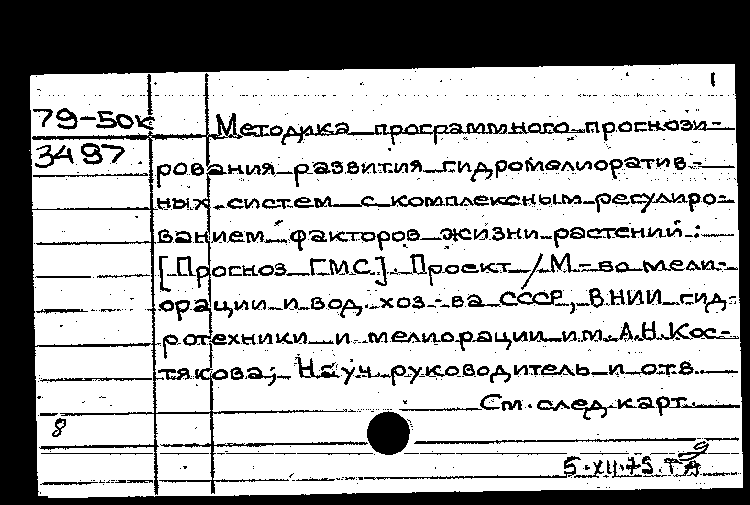 1
79-50к
3497
Методика программного прогнози-
рования развития гидромелиоратив-
ных систем с комплексным регулиро-
ванием факторов жизни растений:
[Прогноз ГМС]. Проект/М-во мели-
орации и вод. хоз-ва СССР, ВНИИ гид-
ротехники и мелиорации им. А.Н. Кос-
тякова; Науч руководитель и отв.
См. след. карт.
8
5.XII.79.